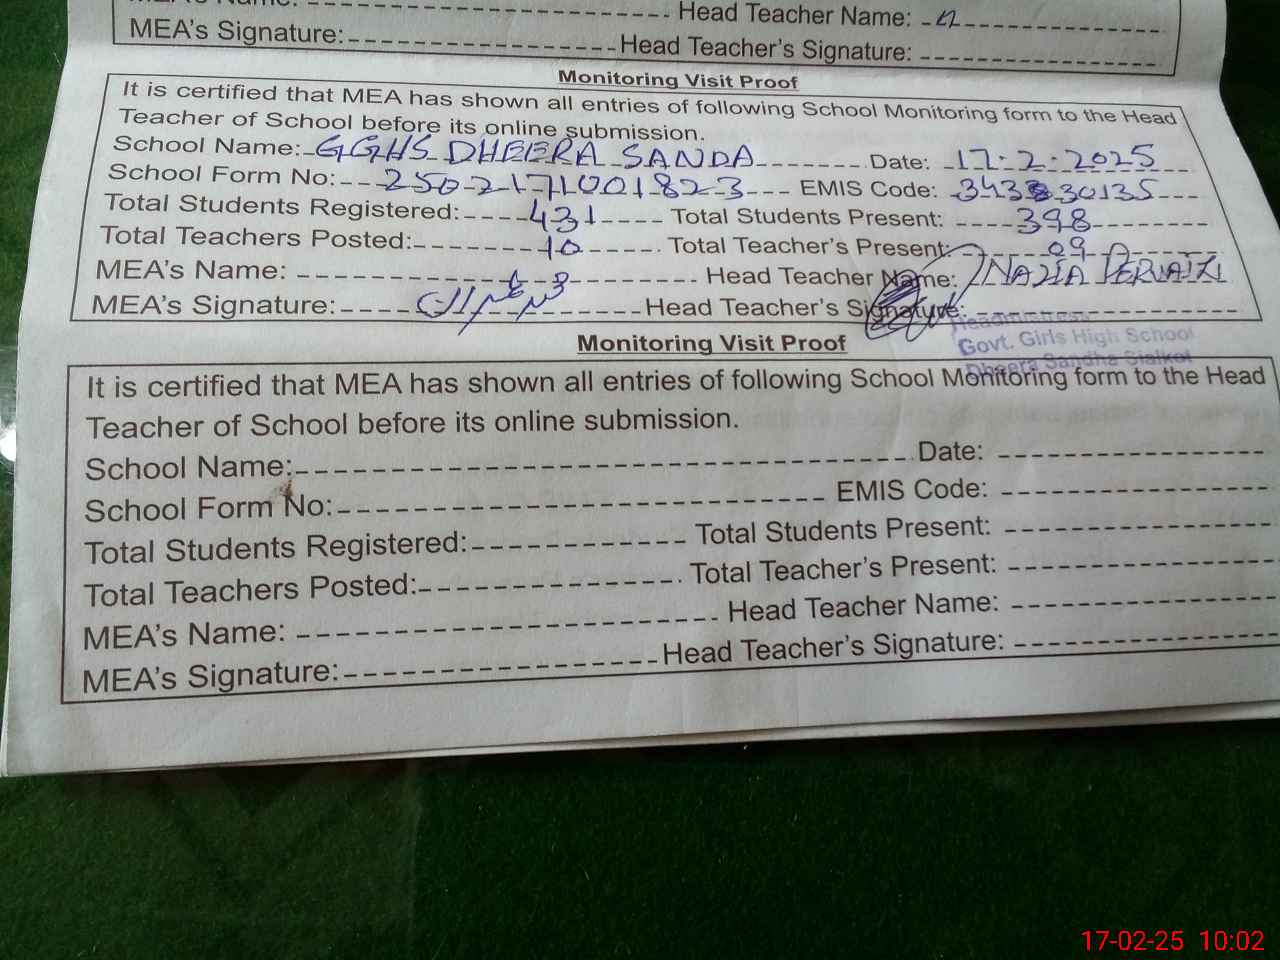 Head Teacher Name:
MEA's Signature: Head Teacher's Signature:
Monitoring Visit Proof
It is certified that MEA has shown all entries of following School Monitoring form to the Head
Teacher of School before its online submission.
School Name: GGHS DHEERA SANDA Date: 17.2.2025
School Form No: 2502171001823 EMIS Code:
Total Students Registered: 431 Total Students Present: 398
Total Teachers Posted: 10 Total Teacher's Present: 09
MEA's Name: Head Teacher Name: NAZIA PERVAIZ
MEA's Signature: Head Teacher's Signature:
Headmistress
Govt. Girls High School
Dheera Sandha Sialkot
Monitoring Visit Proof
It is certified that MEA has shown all entries of following School Monitoring form to the Head
Teacher of School before its online submission.
School Name: Date:
School Form No: EMIS Code:
Total Students Registered: Total Students Present:
Total Teachers Posted: Total Teacher's Present:
MEA's Name: Head Teacher Name:
MEA's Signature: Head Teacher's Signature:
17-02-25 10:02